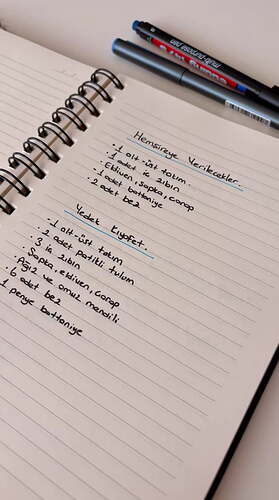 Hemşireye Verilecekler.
· 1 alt-üst takım.
· 1 adet iç zıbın
· Eldiven, şapka, çorap
· 1 adet battaniye
· 2 adet bez
Yedek Kıyafet.
· 1 alt-üst takım
· 2 adet patikli tulum
· 3 iç zıbın
· Şapka, eldiven, çorap
· Ağız ve omuz mendili
· 6 adet bez
1 penye battaniye